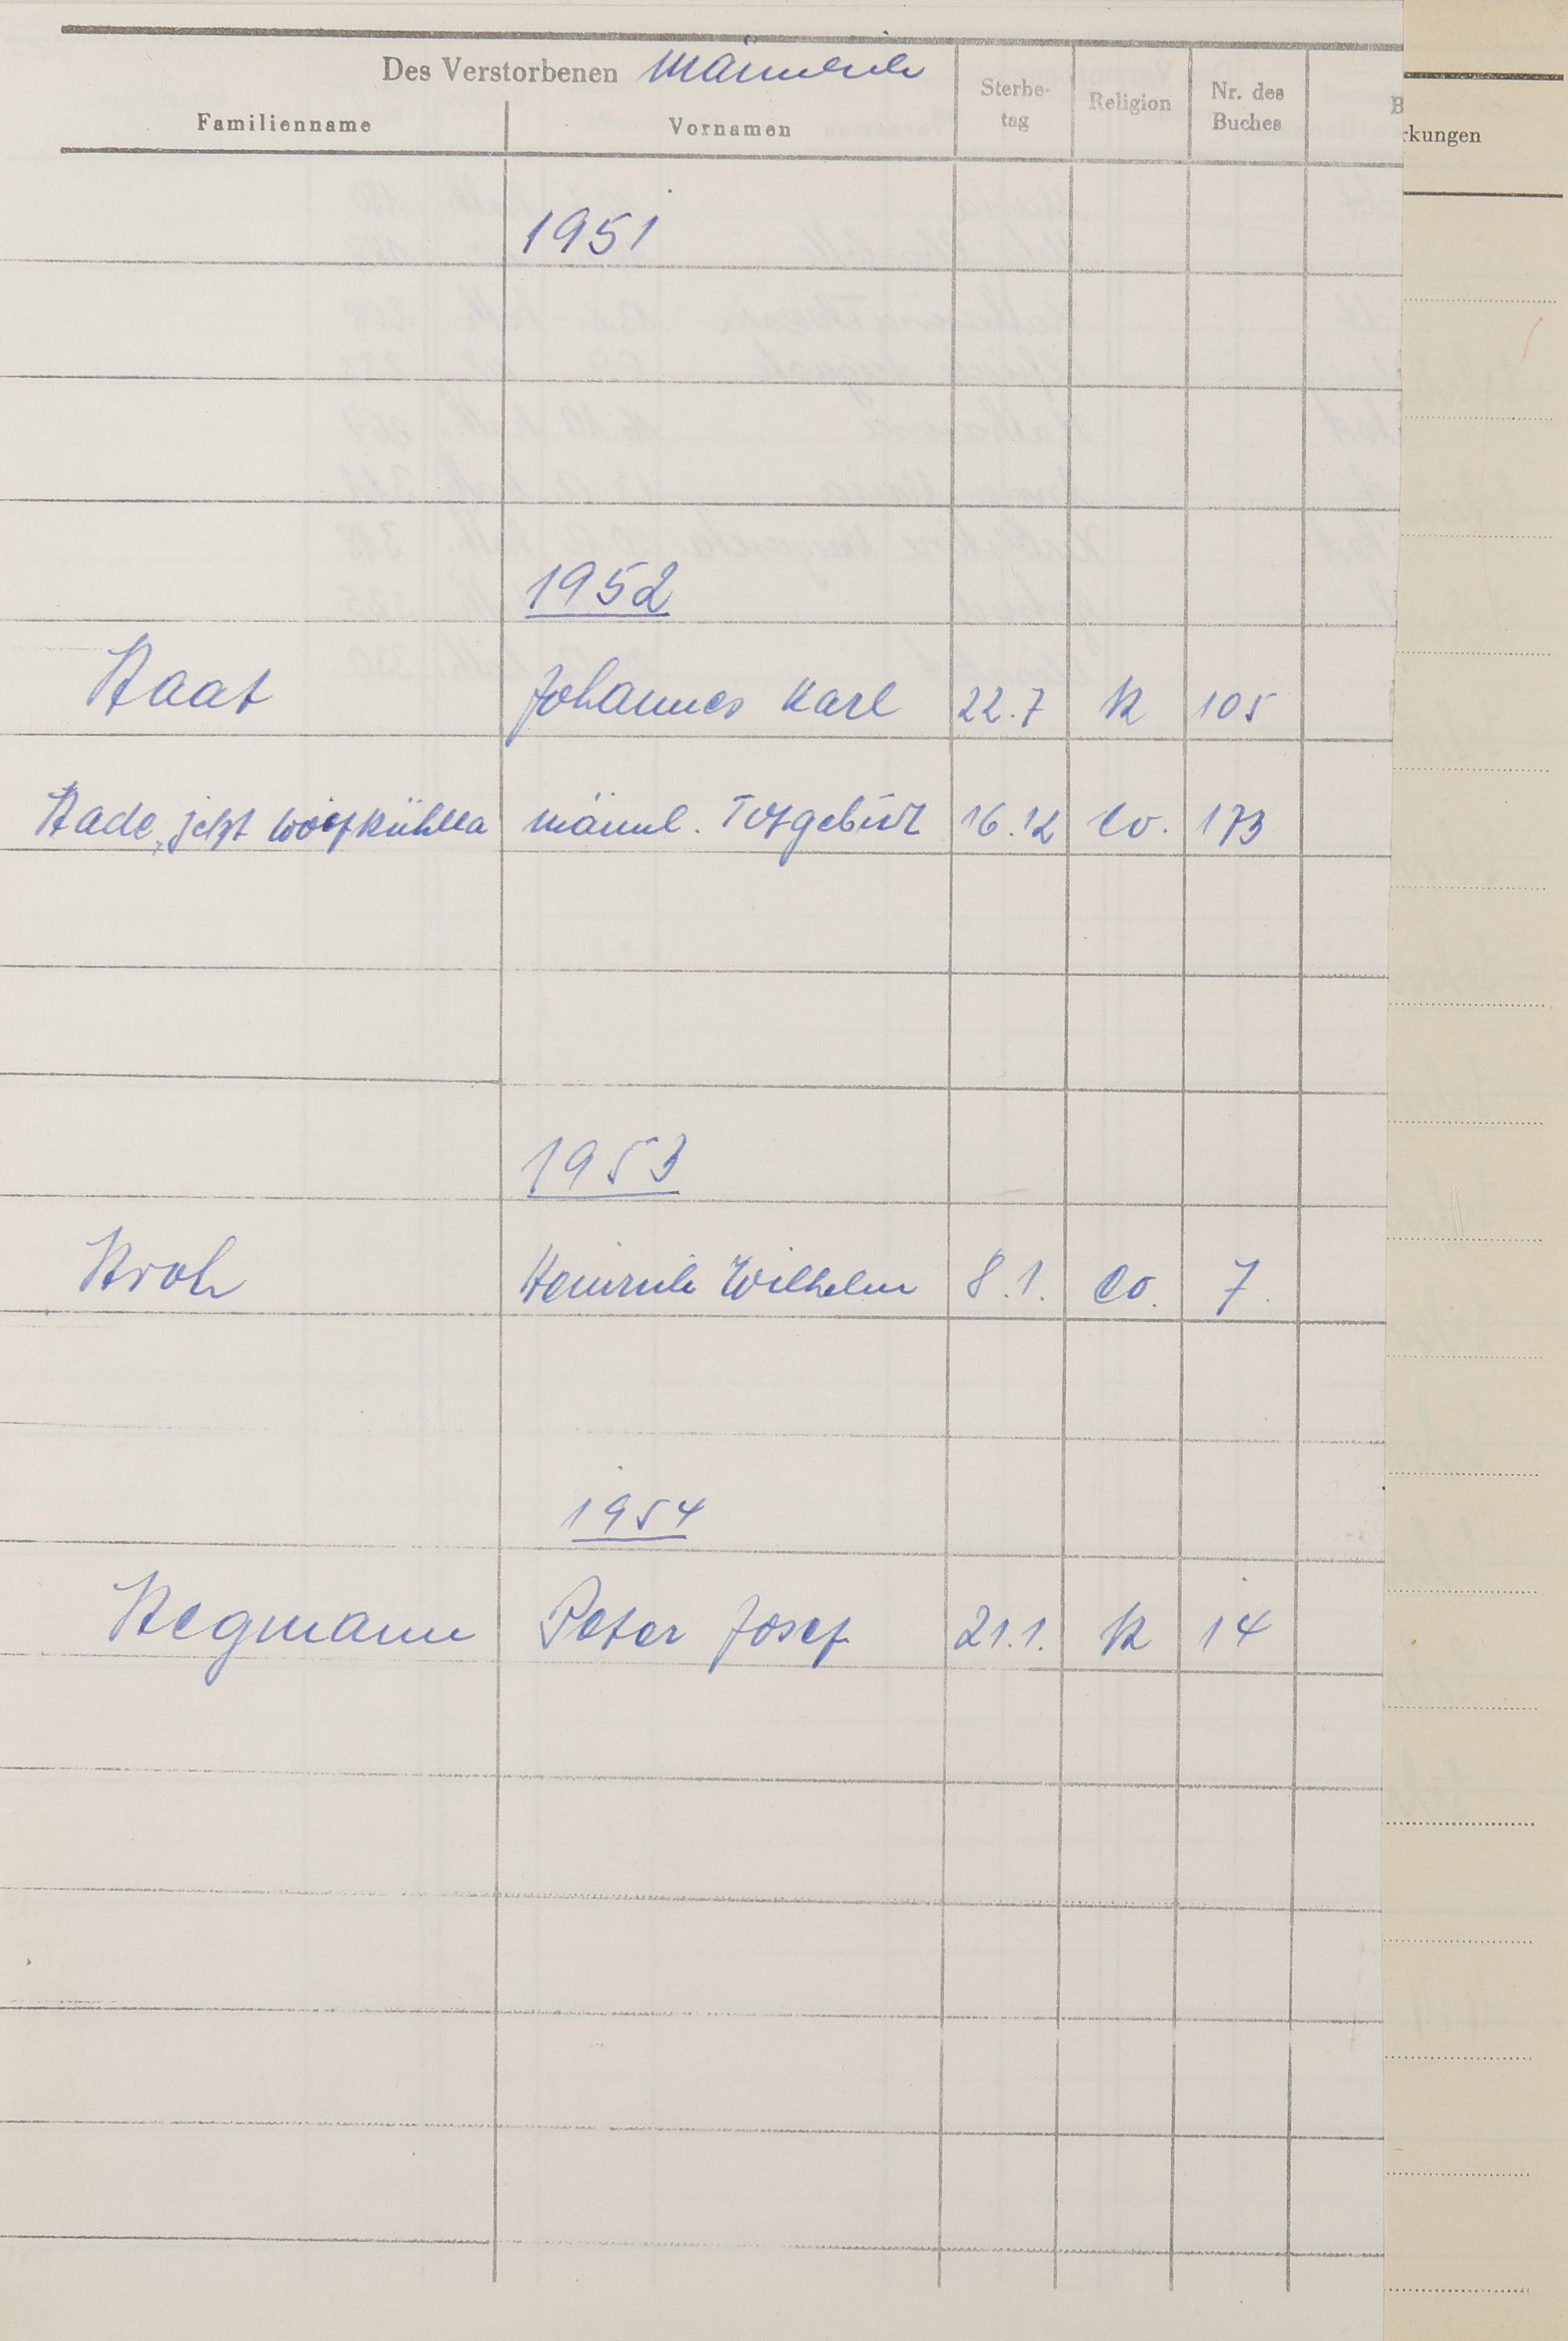 Des Verstorbenen männlich
Familienname Vornamen Sterbe-
tag Religion Nr. des
Buches B
rkungen
1951
1952
Staat Johannes Karl 22.7 K 105
Stade, jetzt männl. Totgeburt 16.12 ev. 173
1953
Stroh Heinrich Wilhelm 8.1. ev. 7.
1954
Stegmann Peter Josef 21.1. K 14